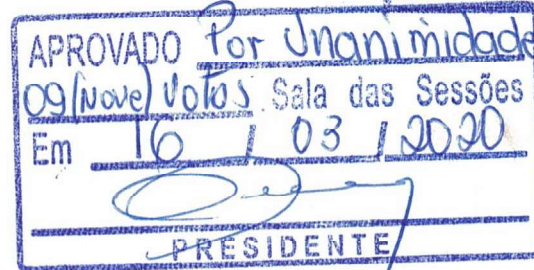 APROVADO Por Unanimidade
09 (Nove) Votos Sala das Sessões
Em 16 / 03 / 2020
PRESIDENTE